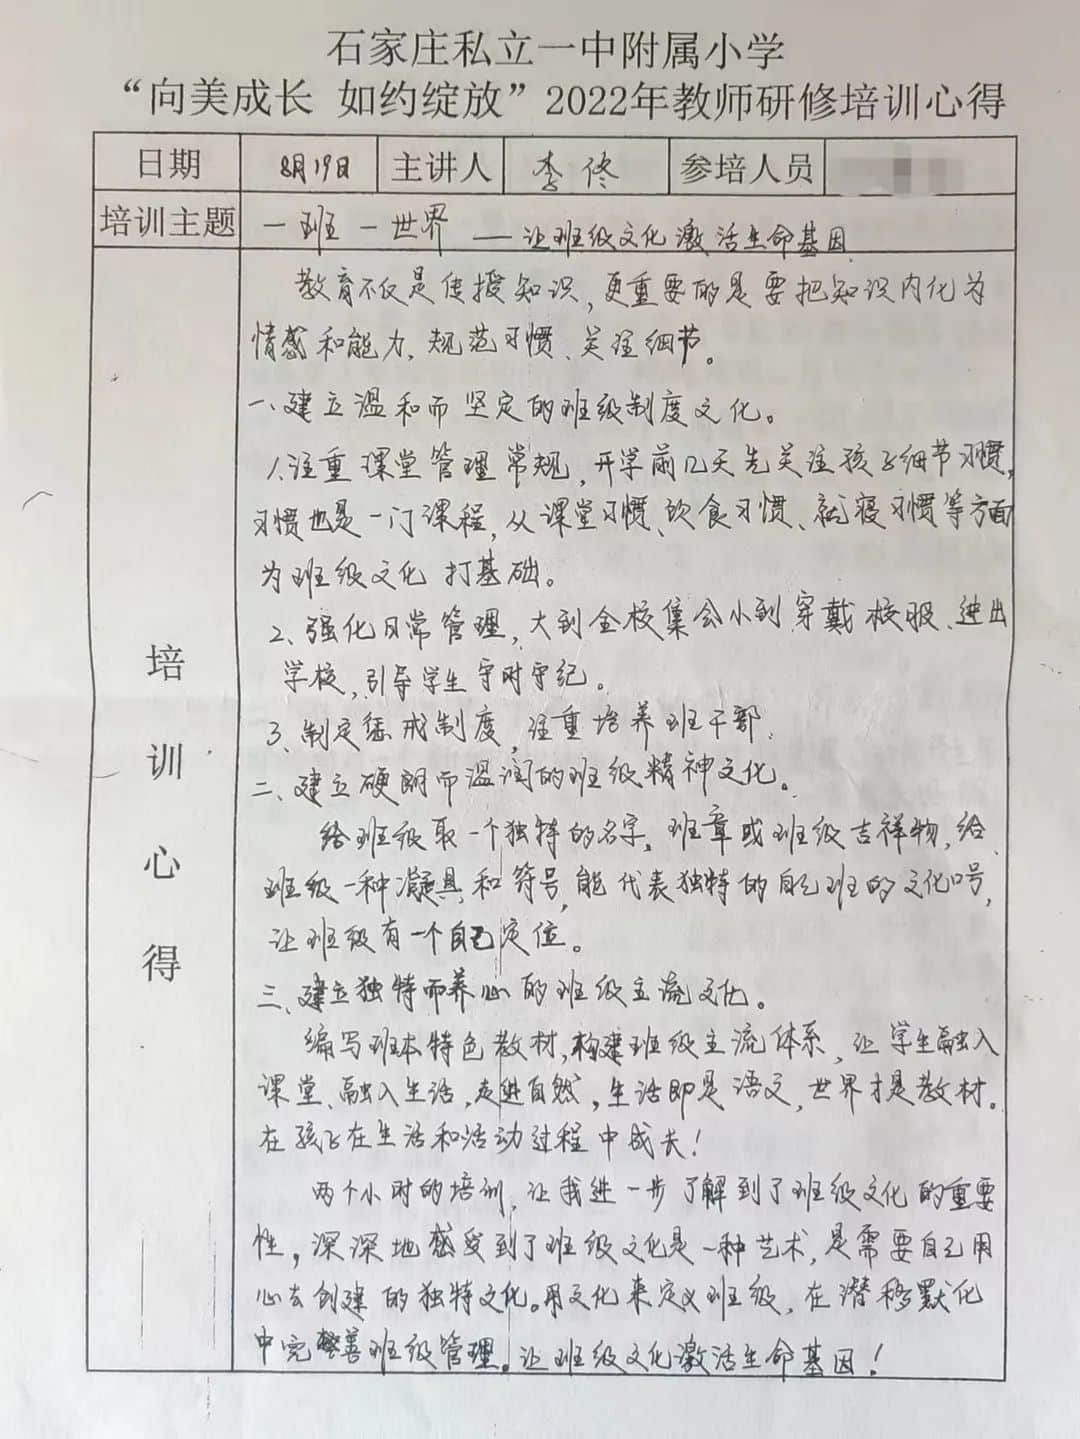 石家庄私立一中附属小学
“向美成长 如约绽放”2022年教师研修培训心得
日期 8月19日 主讲人 李佟 参培人员
培训主题 一班一世界——让班级文化激活生命基因
培训心得
教育不仅是传授知识,更重要的是要把知识内化为
情感和能力、规范习惯、关注细节。
一、建立温和而坚定的班级制度文化。
1、注重课堂管理常规,开学前几天先关注孩子细节习惯,
习惯也是一门课程,从课堂习惯、饮食习惯、就寝习惯等方面
为班级文化打基础。
2、强化日常管理,大到全校集会小到穿戴校服、进出
学校,引导学生守时守纪。
3、制定惩戒制度,注重培养班干部.
二、建立硬朗而温润的班级精神文化。
给班级取一个独特的名字,班章或班级吉祥物,给
班级一种凝具和符号,能代表独特的自己班的文化口号,
让班级有一个自己定位。
三、建立独特而养心的班级主流文化。
编写班本特色教材,构建班级主流体系,让学生融入
课堂、融入生活,走进自然,生活即是语文,世界才是教材。
在孩子在生活和活动过程中成长!
两个小时的培训,让我进一步了解到了班级文化的重要
性,深深地感受到了班级文化是一种艺术,是需要自己用
心去创建的独特文化。用文化来定义班级,在潜移默化
中完善班级管理。让班级文化激活生命基因!